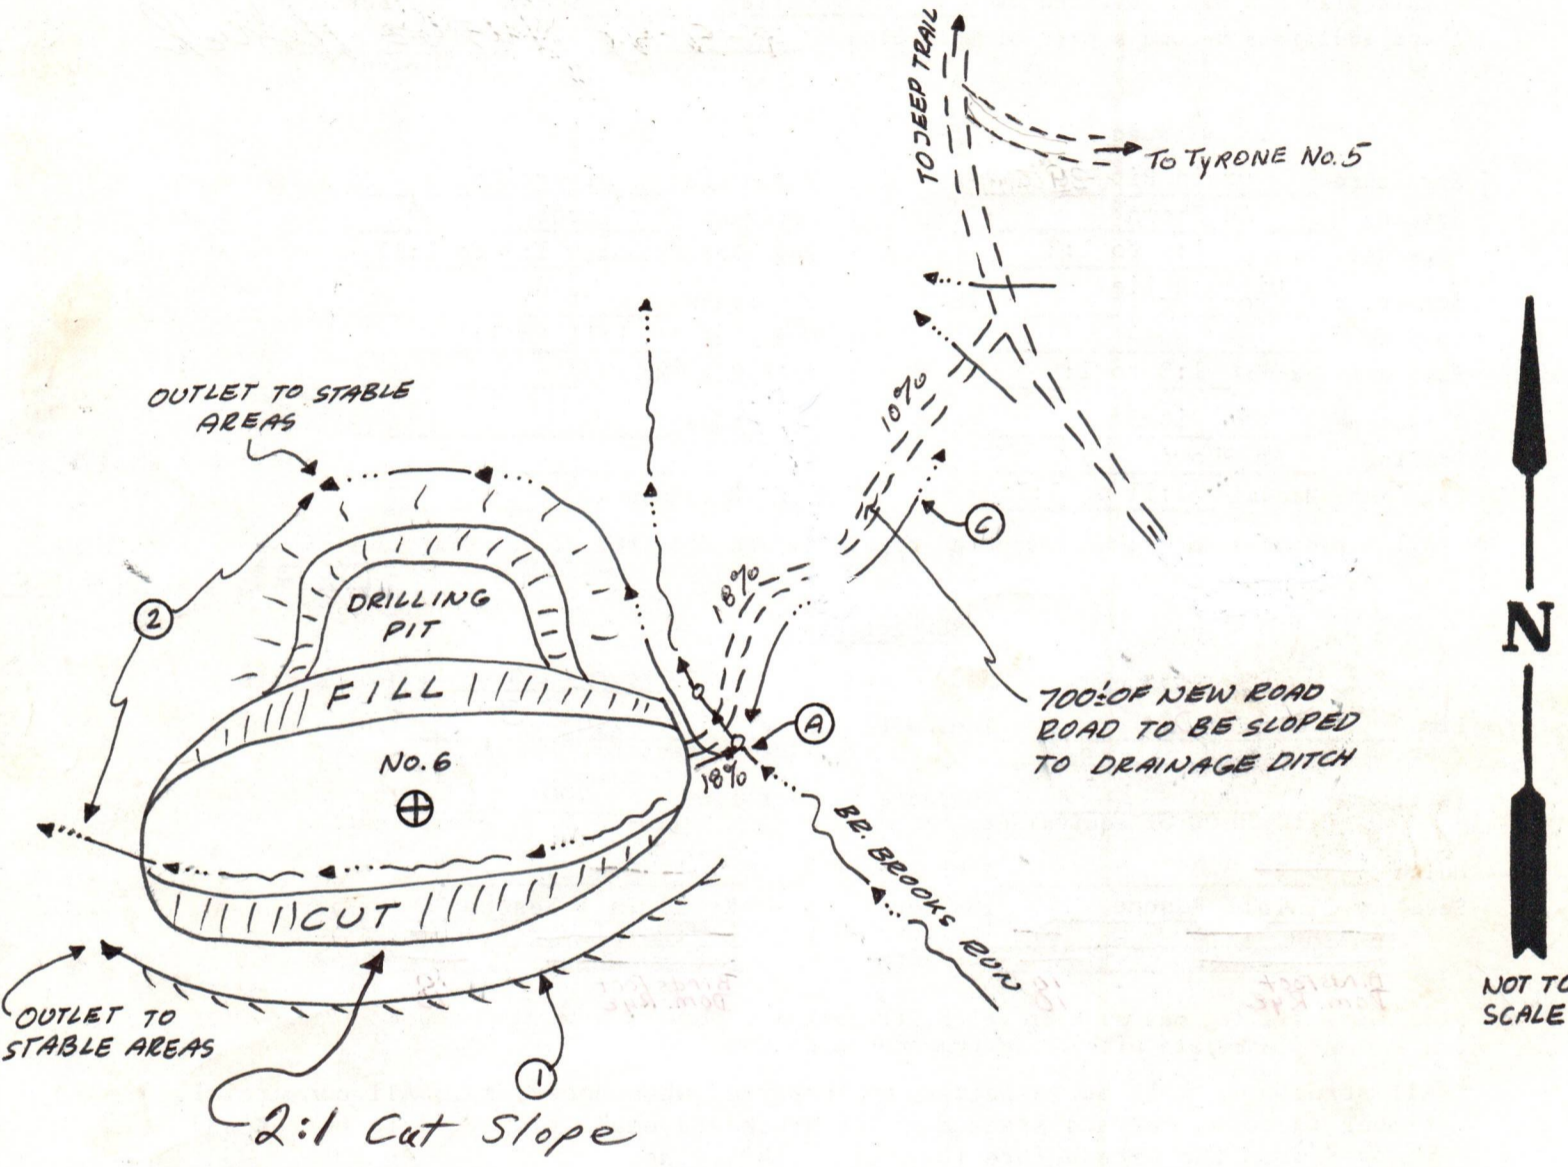 TO JEEP TRAIL
TO TYRONE NO.5
OUTLET TO STABLE
AREAS
10%
C
2
18%
DRILLING
PIT
N
FILL
700± OF NEW ROAD
ROAD TO BE SLOPED
TO DRAINAGE DITCH
A
NO.6
18%
BR. BROOKS RUN
CUT
NOT TO
SCALE
OUTLET TO
STABLE AREAS
1
2:1 Cut Slope